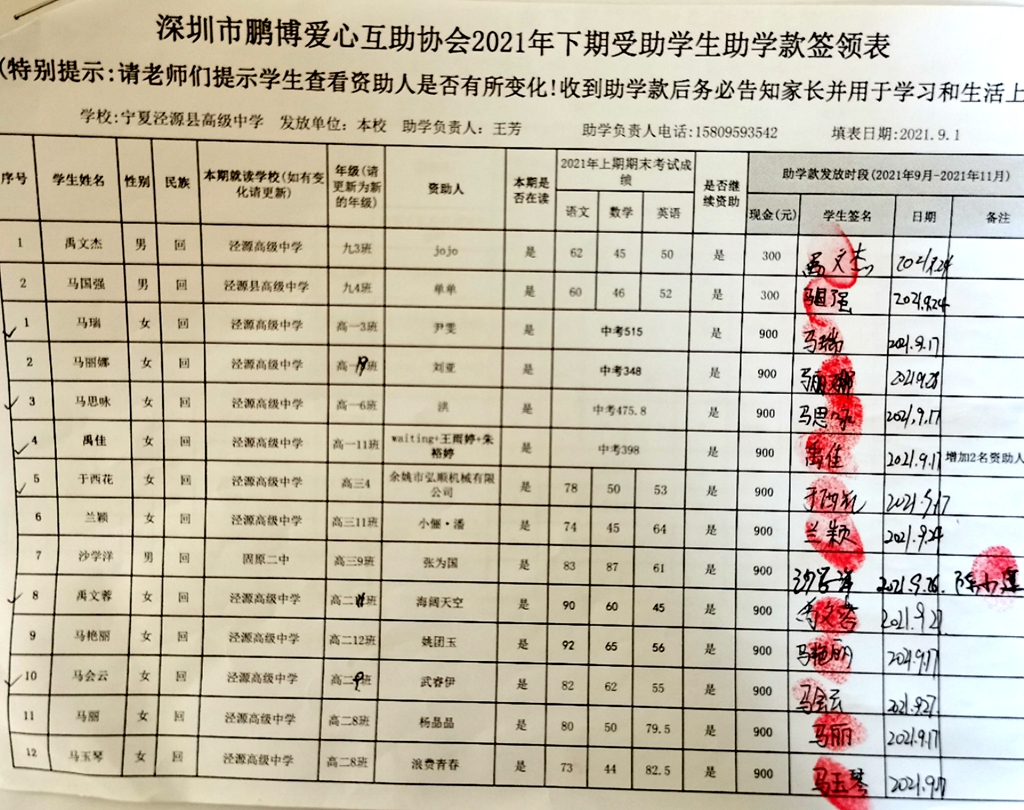 深圳市鹏博爱心互助协会2021年下期受助学生助学款签领表
(特别提示:请老师们提示学生查看资助人是否有所变化!收到助学款后务必告知家长并用于学习和生活上
学校:宁夏泾源县高级中学 发放单位: 本校 助学负责人: 王芳 助学负责人电话:15809593542 填表日期:2021.9.1
序号 学生姓名 性别 民族 本期就读学校(如有变化请更新) 年级(请更新为新的年级) 资助人 本期是否在读 2021年上期期末考试成绩 是否继续资助 助学款发放时段(2021年9月-2021年11月)
语文 数学 英语 现金(元) 学生签名 日期 备注
1 禹文杰 男 回 泾源高级中学 九3班 jojo 是 62 45 50 是 300 禹文杰 2021.9.24
2 马国强 男 回 泾源县高级中学 九4班 单单 是 60 46 52 是 300 马国强 2021.9.24
1 马瑞 女 回 泾源高级中学 高一3班 尹雯 是 中考515 是 900 马瑞 2021.9.17
2 马丽娜 女 回 泾源高级中学 高一19班 刘亚 是 中考348 是 900 马丽娜 2021.9.28
3 马思咏 女 回 泾源高级中学 高一6班 洪 是 中考475.8 是 900 马思咏 2021.9.17
4 禹佳 女 回 泾源高级中学 高一11班 waiting+王雨婷+朱裕婷 是 中考398 是 900 禹佳 2021.9.17 增加2名资助人
5 于西花 女 回 泾源高级中学 高三4 余姚市弘顺机械有限公司 是 78 50 53 是 900 于西花 2021.9.17
6 兰颖 女 回 泾源高级中学 高三11班 小俪·潘 是 74 45 64 是 900 兰颖 2021.9.24
7 沙学洋 男 回 固原二中 高三9班 张为国 是 83 87 61 是 900 沙学洋 2021.9.26
8 禹文蓉 女 回 泾源高级中学 高二班 海阔天空 是 90 60 45 是 900 禹文蓉 2021.9.27
9 马艳丽 女 回 泾源高级中学 高二12班 姚团玉 是 92 65 56 是 900 马艳丽 2021.9.17
10 马会云 女 回 泾源高级中学 高二9班 武睿伊 是 82 62 55 是 900 马会云 2021.9.27
11 马丽 女 回 泾源高级中学 高二8班 杨晶晶 是 80 50 79.5 是 900 马丽 2021.9.17
12 马玉琴 女 回 泾源高级中学 高二8班 浪费青春 是 73 44 82.5 是 900 马玉琴 2021.9.17